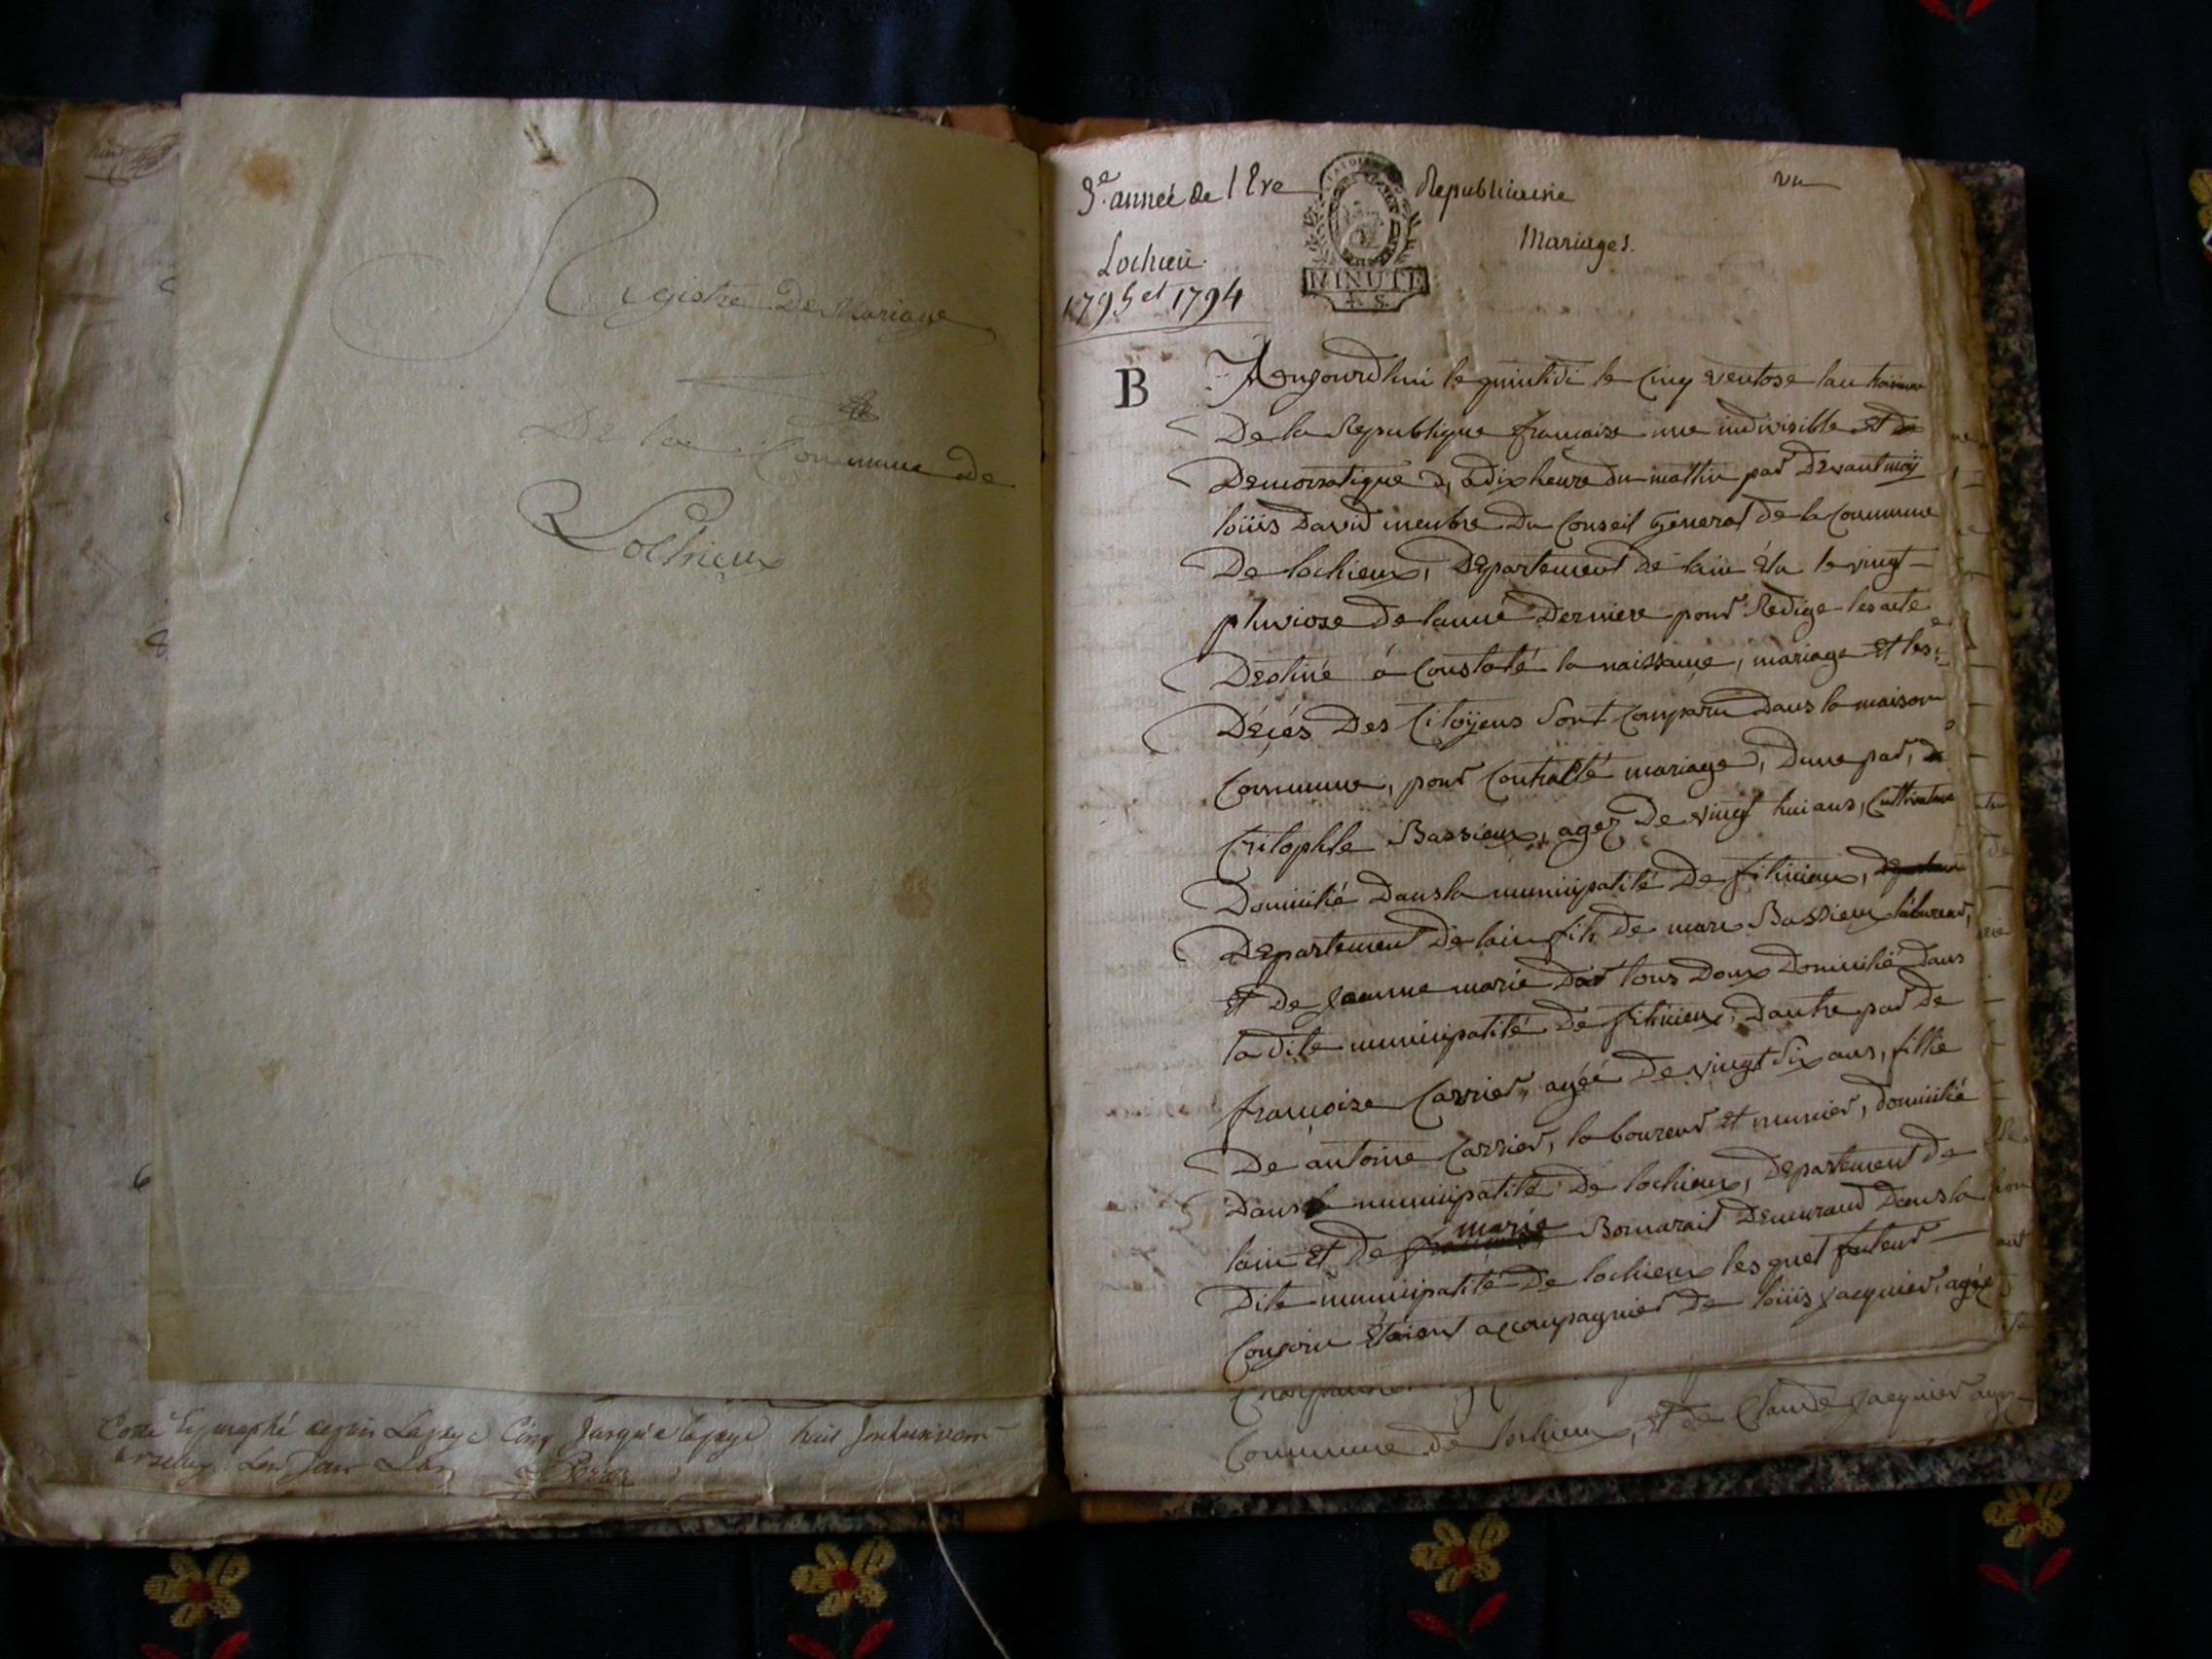 Registre De Mariage
De la Commune de
Lochieux
Cotté et paraphé depuis La page Cinq Jusqu'a la page huit
3e. année de l'Ere Republicaine
vu
Mariages.
Lochieu.
1795 et 1794
MINUTE
4. S.
B
Aougourdhui le quintidi le Cinq ventose lan troisieme
De la Republique francaise une indivisible et de
Democratique, a dix heure du mattin par Devant moy
loüis David menbre Du Conseil General de la Commune
De lochieux, Departement de lain élu le vingt
pluviose de lanné Derniere pour Redige les acte
Destiné á Constaté la naissance, mariage et les
Décés Des Citoÿens sont Comparu dans la maison
Commune, pour Contracté mariage, Dune par, de
Critophle Bassieux, agez De vingt hui ans, Cultivateur
Domicilié Dans la municipalité De fitinieux,
Departement de lain fils de marc Bassieux laboureur,
et De Jeanne marie Dar tous Doux Domicilié Dans
la Dite municipalité De fitinieux; Dautre par De
francoise Carrier, agéé De vingt six ans, fillie
De antoine Carrier, laboureur et munier, domicilié
Dans la municipalité De lochieux, Departement de
lain et de marie Bomarait Demeurand Dans la
Dite municipalité De lochieux les quel futeur
Conjoin étoient accompagnier de loüis Jacquier, agée
Commune de lochieux, et de Claude Jacquier agez